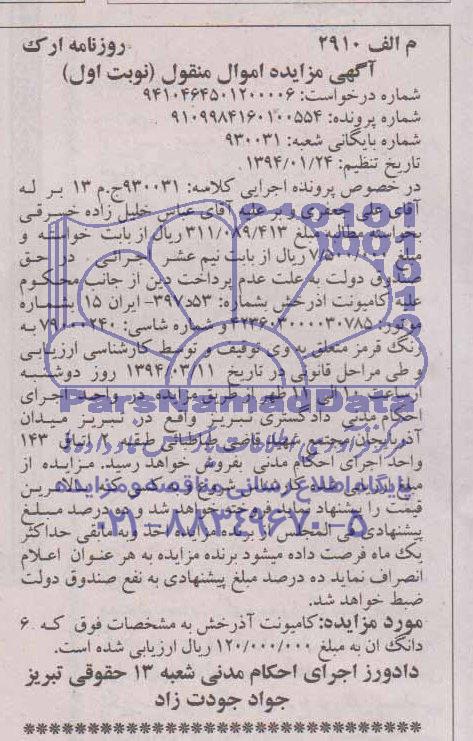 م الف ۲۹۱۰ روزنامه ارک
آگهی مزایده اموال منقول (نوبت اول)
شماره درخواست: ۹۴۱۰۴۶۴۵۰۱۲۰۰۰۰۶
شماره پرونده: ۹۱۰۹۹۸۴۱۶۰۱۰۰۵۵۴
شماره بایگانی شعبه: ۹۳۰۰۳۱
تاریخ تنظیم: ۱۳۹۴/۰۱/۲۴
در خصوص پرونده اجرایی کلاسه: ۹۳۰۰۳۱ج.م ۱۳ بر له
آقای علی جعفری و بر علیه آقای عباس خلیل زاده خسرقی
بخواسته مطالبه مبلغ ۳۱۱/۰۸۹/۴۱۳ ریال از بابت خواسته و
مبلغ ۷/۵۰۰/۰۰۰ ریال از بابت نیم عشر اجرائی در حق
صندوق دولت به علت عدم پرداخت دین از جانب محکوم
علیه کامیونت آذرخش بشماره: ۵۳د۳۹۷- ایران ۱۵ بشماره
موتور: ۴۲۳۶۰۳۰۰۰۰۳۰۷۸۵ و شماره شاسی: ۷۹۰۰۰۲۴۰ به
رنگ قرمز متعلق به وی توقیف و توسط کارشناسی ارزیابی
و طی مراحل قانونی در تاریخ ۱۳۹۴/۰۳/۱۱ روز دوشنبه
از ساعت ۱۰ الی ۱۱ ظهر از طریق مزایده در واحد اجرای
احکام مدنی دادگستری تبریز واقع در تبریز میدان
آذربایجان مجتمع شهید قاضی طباطبائی طبقه ۲ اتاق ۱۴۳
واحد اجرای احکام مدنی بفروش خواهد رسید. مزایده از
مبلغ ارزیابی شده کارشناس شروع و به کسی که بالاترین
قیمت را پیشنهاد نماید فروخته خواهد شد و ده درصد مبلغ
پیشنهادی فی المجلس از برنده مزایده اخذ و به مابقی حداکثر
یک ماه فرصت داده میشود برنده مزایده به هر عنوان اعلام
انصراف نماید ده درصد مبلغ پیشنهادی به نفع صندوق دولت
ضبط خواهد شد.
مورد مزایده: کامیونت آذرخش به مشخصات فوق که ۶
دانگ ان به مبلغ ۱۲۰/۰۰۰/۰۰۰ ریال ارزیابی شده است.
دادورز اجرای احکام مدنی شعبه ۱۳ حقوقی تبریز
جواد جودت زاد
ParsNamadData
پایگاه اطلاع رسانی مناقصه و مزایده
۰۲۱-۸۸۳۴۹۶۷۰-۵